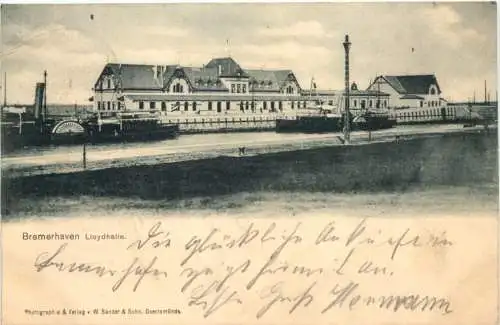 Bremerhaven Lloydhalle.
Die glückliche Ankunft in
Bremerhafen zeigt hiermit an.
Besten Gruß Hermann
Photographie & Verlag v. W. Sander & Sohn, Geestemünde.